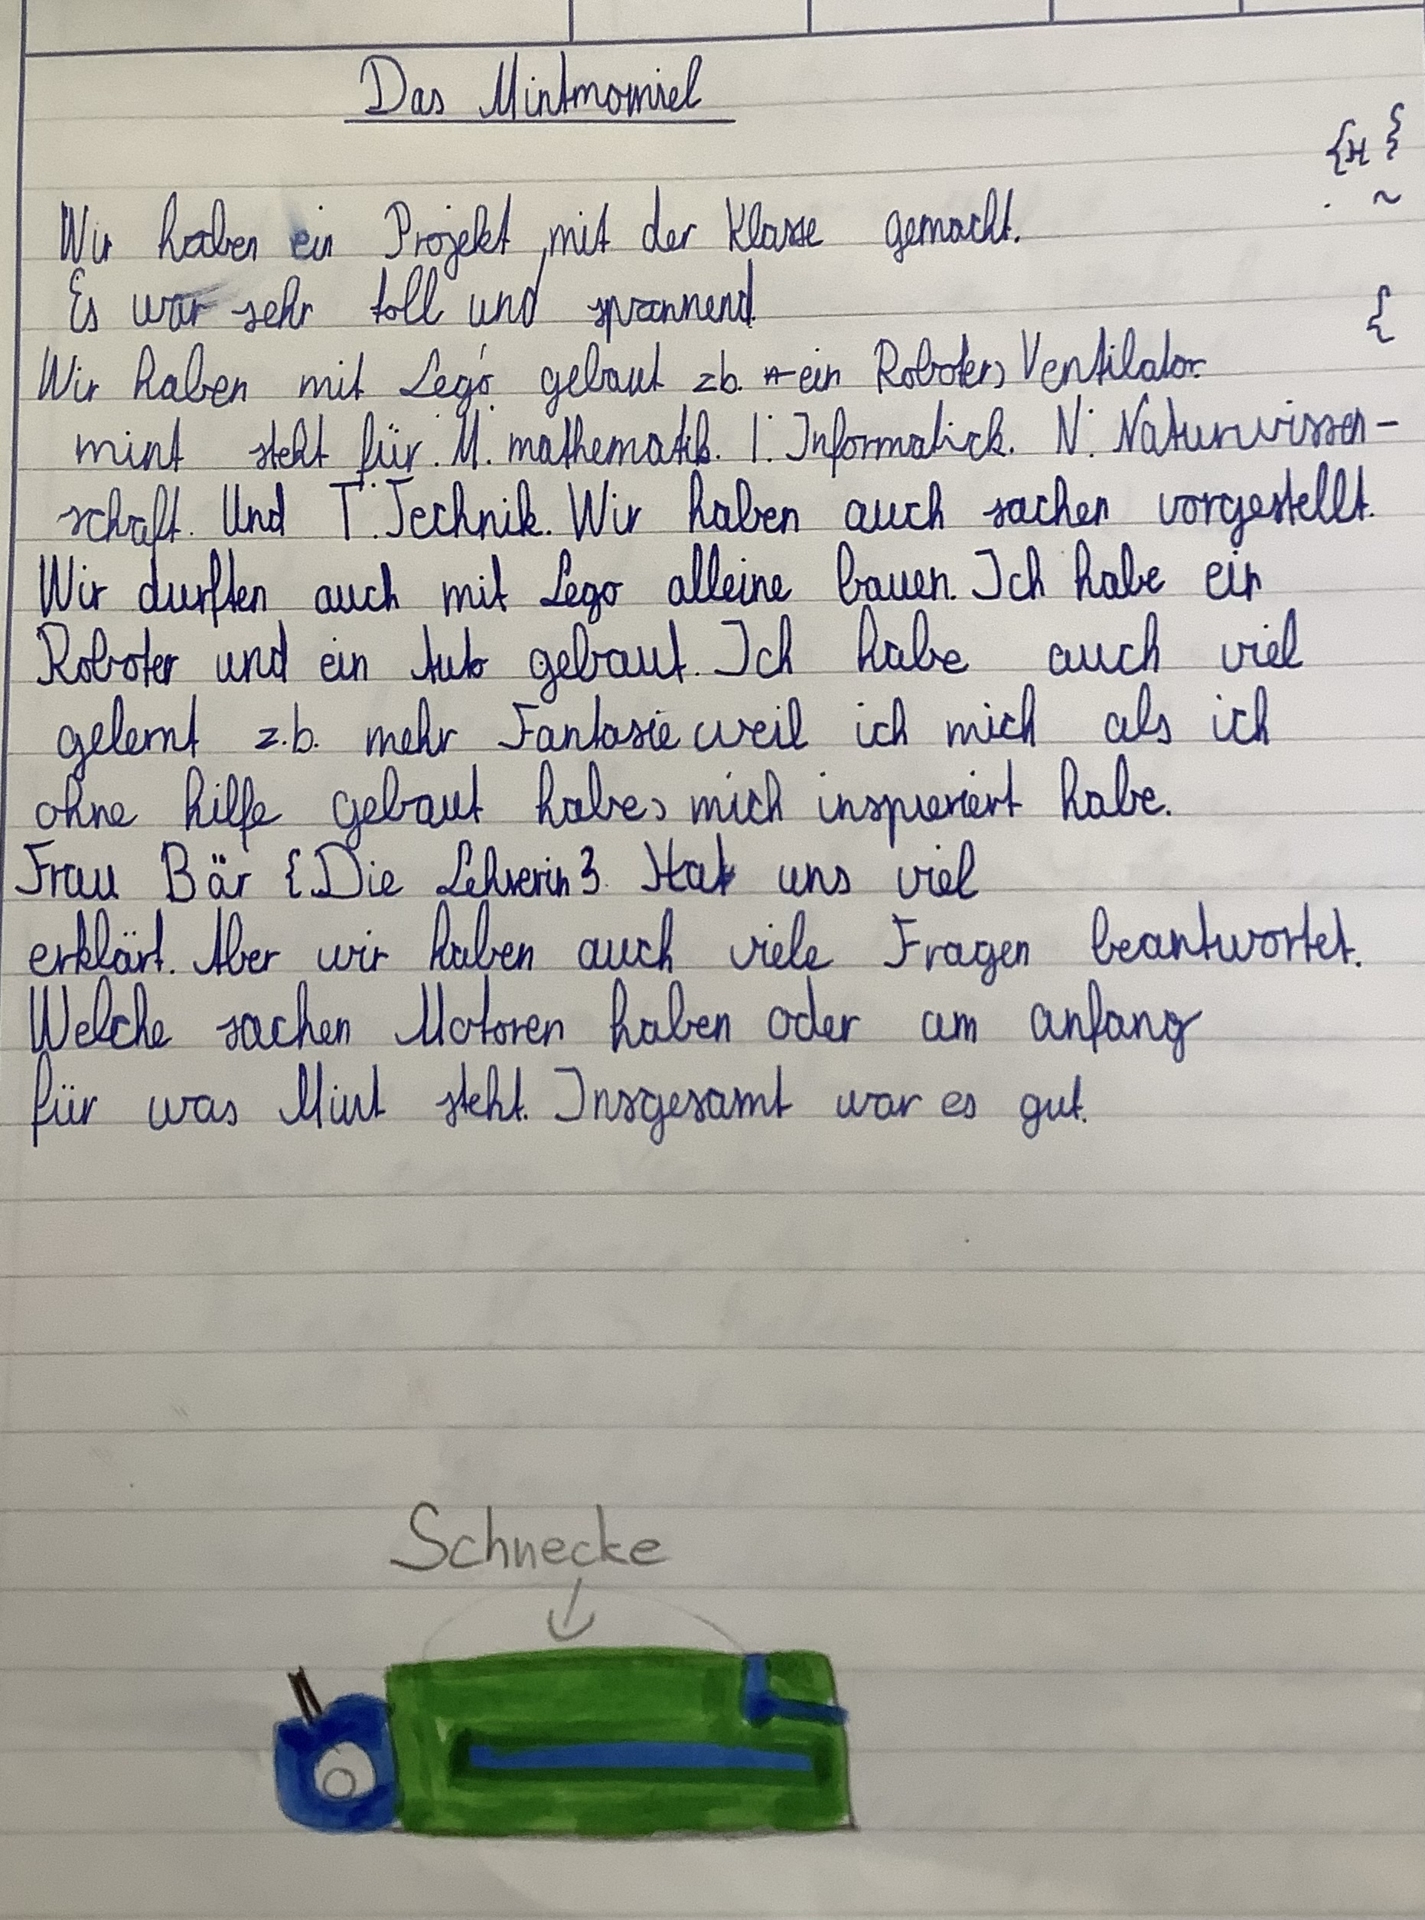 Das Mintmomiel
{H}
~
Wir haben ein Projekt mit der Klasse gemacht.
Es war sehr toll und spannend
{
Wir haben mit Lego gebaut zb. ein Roboter, Ventilator.
mint steht für. M. mathematik. I. Informatick. N. Naturwissen-
schaft. Und T. Technik. Wir haben auch sachen vorgestellt.
Wir durften auch mit Lego alleine bauen. Ich habe ein
Roboter und ein Auto gebaut. Ich habe auch viel
gelernt z.b. mehr Fantasie weil ich mich als ich
ohne hilfe gebaut habe, mich inspieriert habe.
Frau Bär {Die Lehrerin}. Hat uns viel
erklärt. Aber wir haben auch viele Fragen beantwortet.
Welche sachen Motoren haben oder am anfang
für was Mint steht. Insgesamt war es gut.
Schnecke